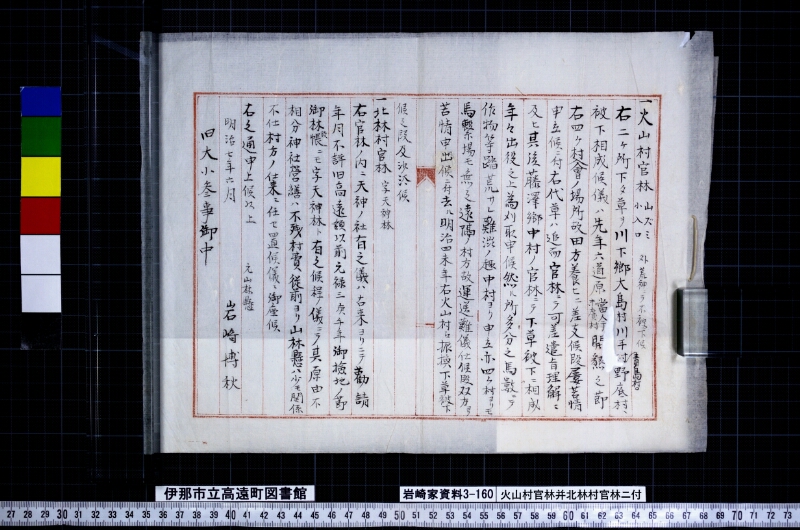 一火山村官林 山ズミ 小入口
右二ヶ所下タ草ヲ川下郷大島村川手村野底村青島村
被下相成候儀ハ先年六道原當今ノ上ノ原村開墾之節
右四ヶ村入會ノ場所故田方養ヒニ差支候段屡苦情
申立候ニ付右代草ハ追而官林ニテ可差遣旨理解ニ
及ヒ其後藤澤郷中村ノ官林ニテ下草被下ニ相成
年々出役之上為刈取申候然ル所多分之馬數ニテ
作物等踏荒サレ難渋ノ趣中村ヨリ申立亦四ヶ村ヨリモ
馬繋場モ無之遠隔ノ村方故運送難儀仕候段双方ヨリ
苦情申出候ニ付去ル明治四未年右火山村ニ振換下草被下
候之段及承候
一北林村官林 字天神林
右官林ノ内ニ天神ノ社有之儀ハ古来ヨリニテ勧請
年月不詳旧高遠領以前元禄三庚午年御検地ノ節
御林帳ニモ字天神林ト有之候得儀ニテ其原由不
相分神社営繕ハ不残村費従前ヨリ山林懸ハ少モ関係
不仕村方ノ仕来ニ任せ置候儀ニ御座候
右之通申上候以上
明治七年六月
元山林懸
岩﨑博秋
旧大小参事御中
伊那市立高遠町図書館
岩崎家資料3-160
火山村官林并北林村官林ニ付